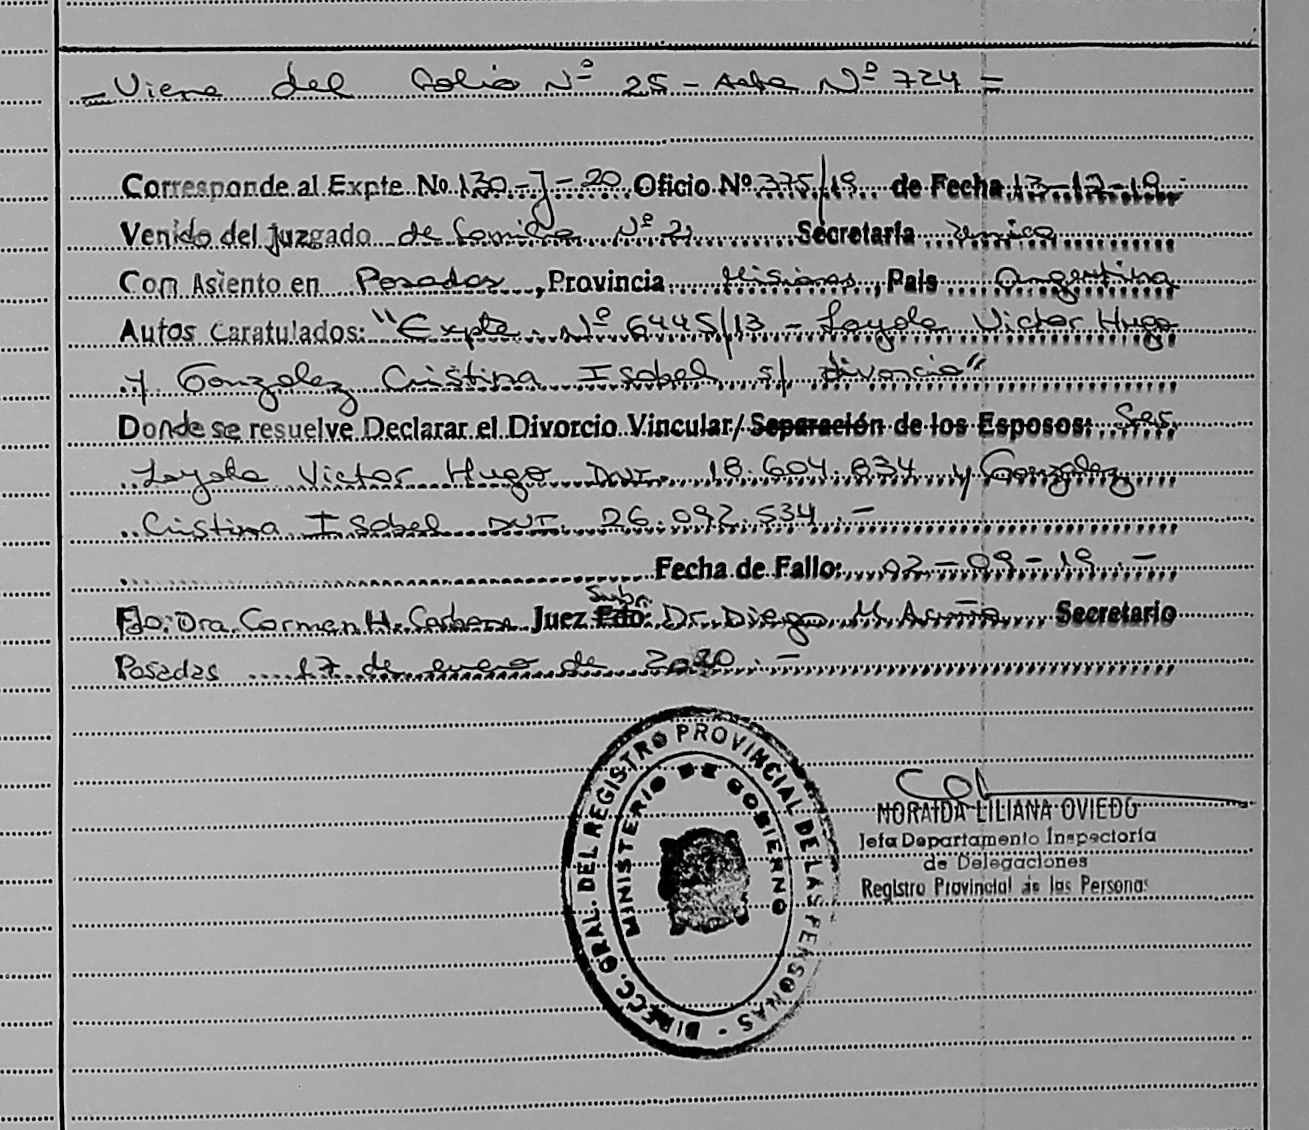 - Viene del Folio Nº 25 - Acta Nº 724 -
Corresponde al Expte No 130-J-20 Oficio Nº 375/19 de Fecha 13-12-19.
Venido del Juzgado de Familia Nº 2 Secretaría única
Con Asiento en Posadas, Provincia Misiones, País Argentina
Autos Caratulados: "Expte. Nº 6445/13 - Loyola Victor Hugo
y Gonzalez Cristina Isabel s/ Divorcio"
Donde se resuelve Declarar el Divorcio Vincular/Separación de los Esposos: Sres
Loyola Victor Hugo DNI. 18.604.834 y Gonzalez
Cristina Isabel DNI. 26.092.534. -
Fecha de Fallo: 02-09-19. -
Subr.
Fdo: Dra. Carmen H. Carbone Juez Fdo: Dr. Diego M. Acuña Secretario
Posadas 17 de enero de 2020. -
DIRECC. GRAL. DEL REGISTRO PROVINCIAL DE LAS PERSONAS -
MINISTERIO DE GOBIERNO
NORAIDA LILIANA OVIEDO
Jefa Departamento Inspectoría
de Delegaciones
Registro Provincial de las Personas